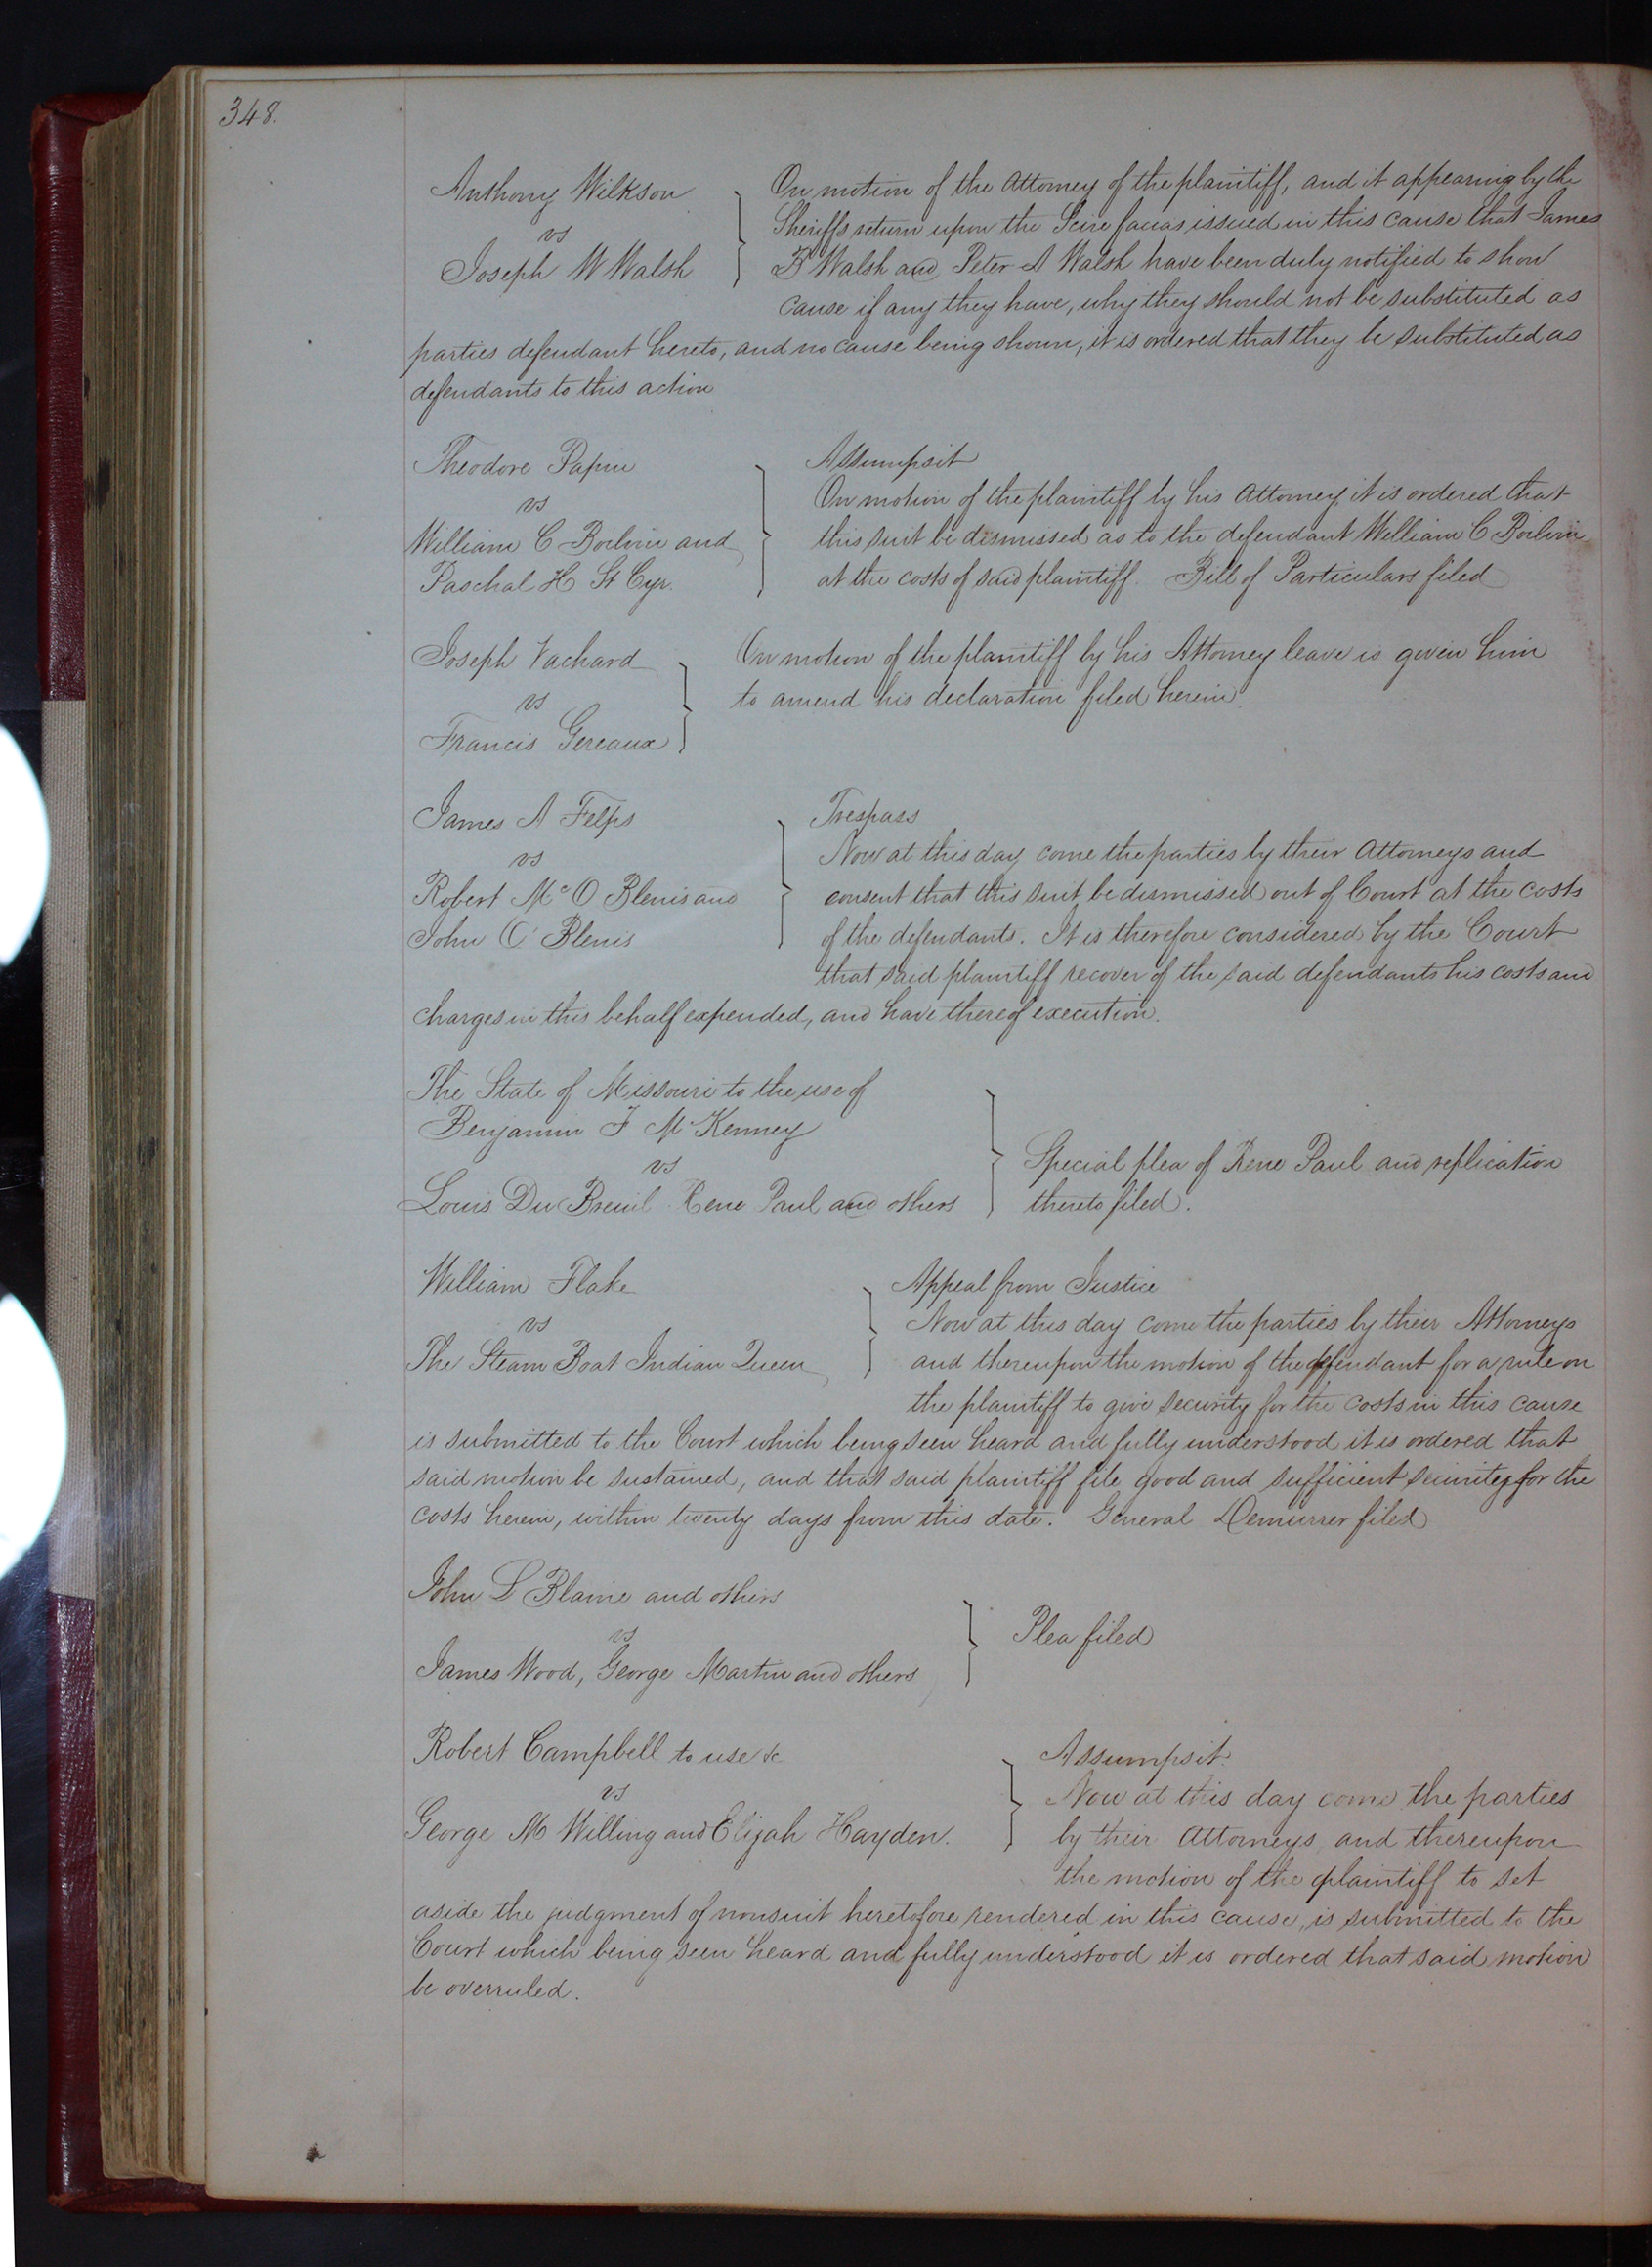 348.
Anthony Wilkson
vs
Joseph W Walsh
On motion of the Attorney of the plaintiff, and it appearing by the
Sheriffs return upon the Scire facias issued in this cause that James
B Walsh and Peter A Walsh have been duly notified to show
cause if any they have, why they should not be substituted as
parties defendant hereto, and no cause being shown, it is ordered that they be substituted as
defendants to this action
Theodore Papin
vs
William C Boilvin and
Paschal H St Cyr.
Assumpsit
On motion of the plaintiff by his Attorney, it is ordered that
this suit be dismissed as to the defendant William C Boilvin
at the costs of said plaintiff. Bill of Particulars filed
Joseph Vachard
vs
Francis Gereaux
On motion of the plaintiff by his Attorney leave is given him
to amend his declaration filed herein.
James A Felps
vs
Robert Mc O Blenis and
John O' Blenis
Trespass
Now at this day come the parties by their Attorneys and
consent that this suit be dismissed out of Court at the costs
of the defendants. It is therefore considered by the Court
that said plaintiff recover of the said defendants his costs and
charges in this behalf expended, and have thereof execution.
The State of Missouri to the use of
Benjamin F McKenney
vs
Louis Du Breuil Rene Paul and others
Special plea of Rene Paul and replication
thereto filed.
William Flake
vs
The Steam Boat Indian Queen
Appeal from Justice
Now at this day come the parties by their Attorneys
and thereupon the motion of the defendant for a rule on
the plaintiff to give security for the costs in this cause
is submitted to the Court which being seen heard and fully understood it is ordered that
said motion be sustained, and that said plaintiff file good and sufficient security for the
costs herein, within twenty days from this date. General Demurrer filed
John L Blaine and others
vs
James Wood, George Martin and others
Plea filed
Robert Campbell to use &c
vs
George M Willing and Elijah Hayden.
Assumpsit.
Now at this day come the parties
by their Attorneys, and thereupon
the motion of the plaintiff to set
aside the judgment of nonsuit heretofore rendered in this cause, is submitted to the
Court which being seen heard and fully understood it is ordered that said motion
be overruled.